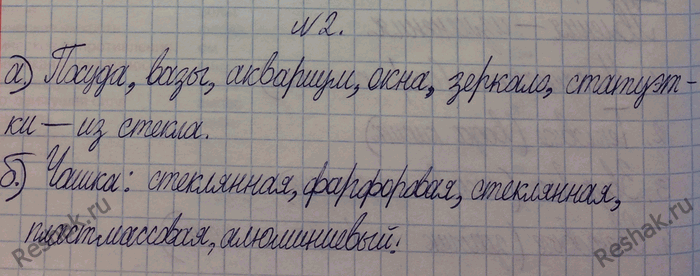 №2.
а) Посуда, вазы, аквариум, окна, зеркало, статуэт-
ки — из стекла.
б) Чашка: стеклянная, фарфоровая, стеклянная,
пластмассовая, алюминиевый.
Reshak.ru
Reshak.ru